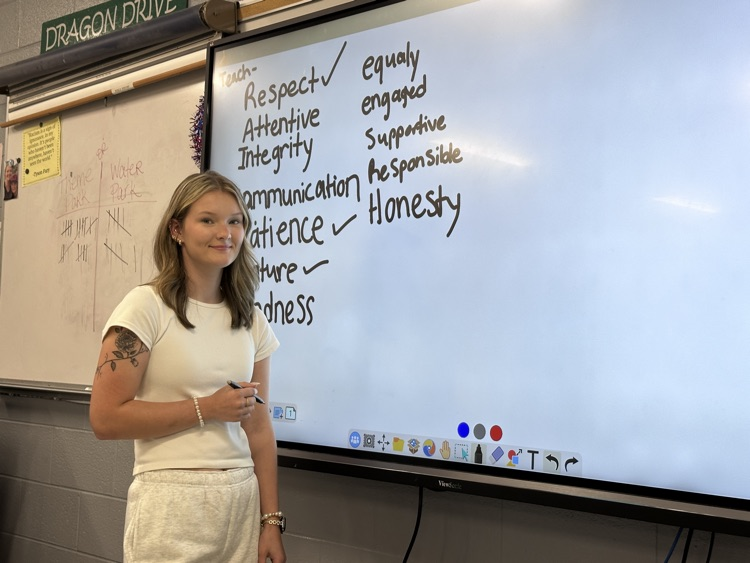 DRAGON DRIVE
Teach-
Respect ✓
Attentive
Integrity
ommunication
atience ✓
ature ✓
ndness
equaly
engaged
Supportive
Responsible
Honesty
Theme Park
or
Water Park
T
ViewSonic